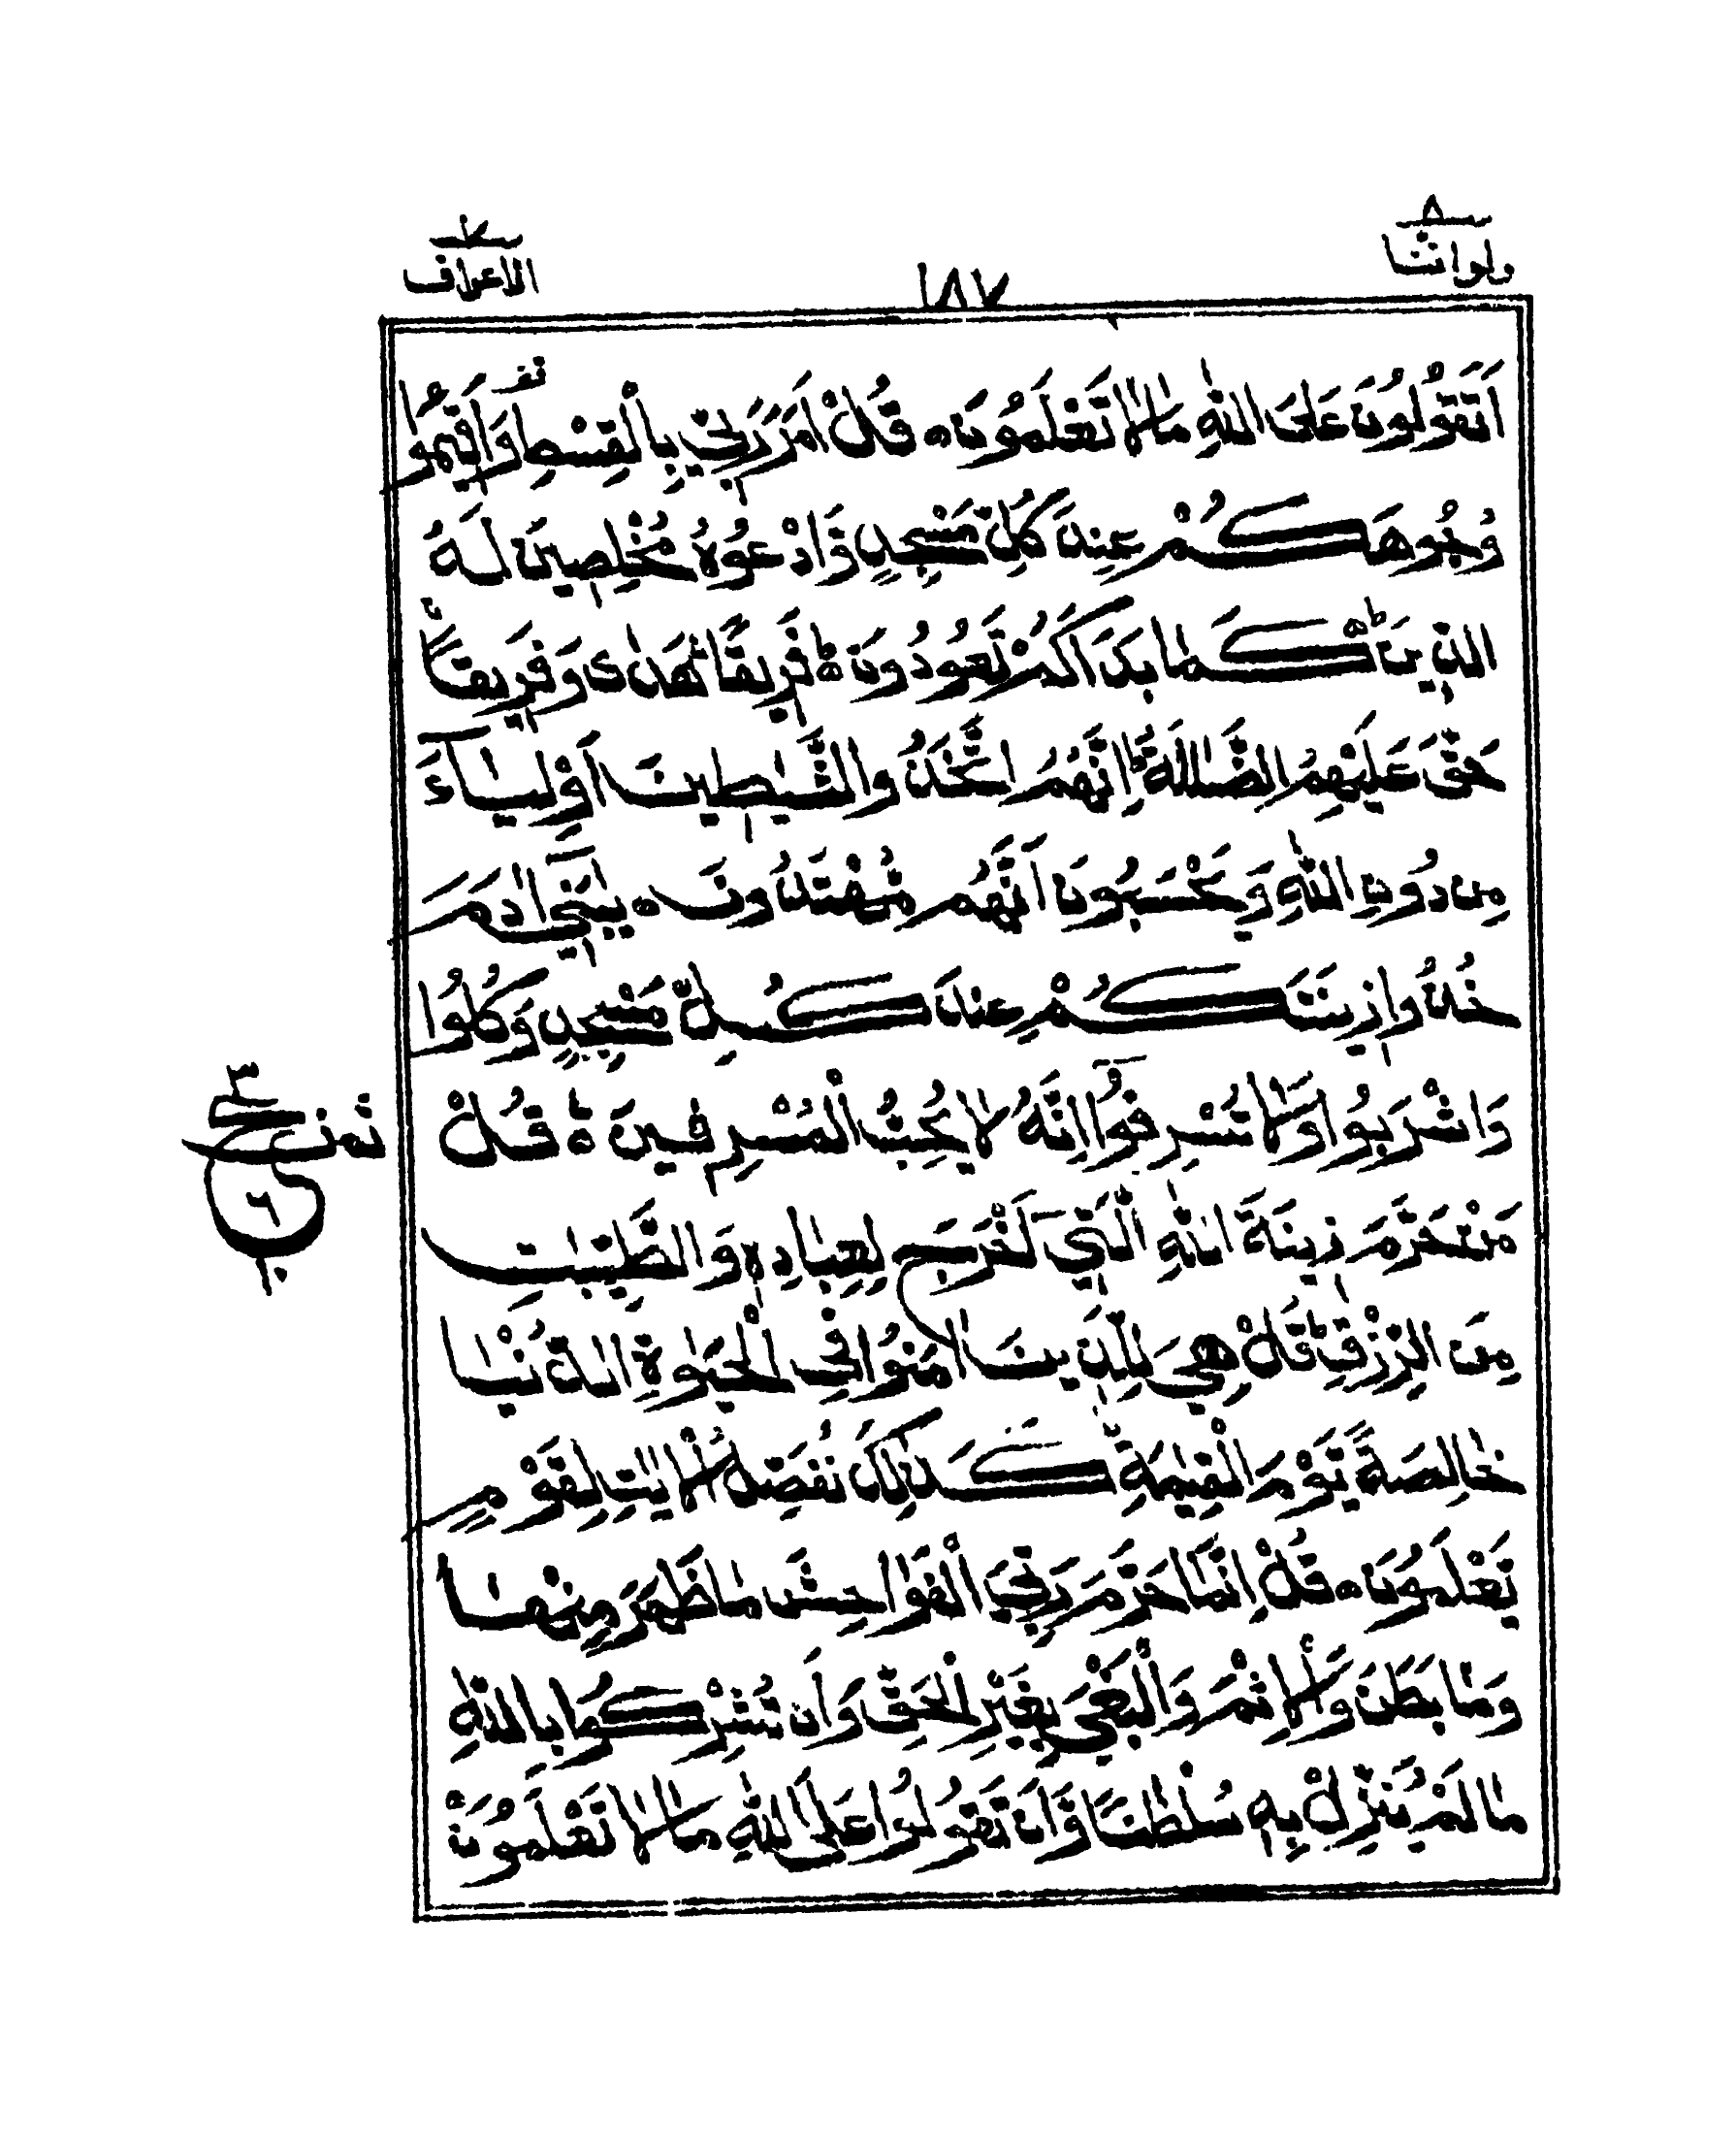 ولواننا ٨
١٨٧
الاعراف ٧
اَتَقُوْلُوْنَ عَلَى اللّٰهِ مَا لَا تَعْلَمُوْنَ ۝ قُلْ اَمَرَ رَبِّيْ بِالْقِسْطِ وَاَقِيْمُوْا
وُجُوْهَكُمْ عِنْدَ كُلِّ مَسْجِدٍ وَّادْعُوْهُ مُخْلِصِيْنَ لَهُ
الدِّيْنَ ؕ كَمَا بَدَاَكُمْ تَعُوْدُوْنَ ؕ فَرِيْقًا هَدٰى وَفَرِيْقًا
حَقَّ عَلَيْهِمُ الضَّلٰلَةُ ؕ اِنَّهُمُ اتَّخَذُوا الشَّيٰطِيْنَ اَوْلِيَآءَ
مِنْ دُوْنِ اللّٰهِ وَيَحْسَبُوْنَ اَنَّهُمْ مُّهْتَدُوْنَ ۝ يٰبَنِيْٓ اٰدَمَ
خُذُوْا زِيْنَتَكُمْ عِنْدَ كُلِّ مَسْجِدٍ وَّكُلُوْا
وَاشْرَبُوْا وَلَا تُسْرِفُوْا ۚ اِنَّهٗ لَا يُحِبُّ الْمُسْرِفِيْنَ ۝ قُلْ
ثمن ع ٣ ٦ ١٠
مَنْ حَرَّمَ زِيْنَةَ اللّٰهِ الَّتِيْٓ اَخْرَجَ لِعِبَادِهٖ وَالطَّيِّبٰتِ
مِنَ الرِّزْقِ ؕ قُلْ هِيَ لِلَّذِيْنَ اٰمَنُوْا فِي الْحَيٰوةِ الدُّنْيَا
خَالِصَةً يَّوْمَ الْقِيٰمَةِ ؕ كَذٰلِكَ نُفَصِّلُ الْاٰيٰتِ لِقَوْمٍ
يَّعْلَمُوْنَ ۝ قُلْ اِنَّمَا حَرَّمَ رَبِّيَ الْفَوَاحِشَ مَا ظَهَرَ مِنْهَا
وَمَا بَطَنَ وَالْاِثْمَ وَالْبَغْيَ بِغَيْرِ الْحَقِّ وَاَنْ تُشْرِكُوْا بِاللّٰهِ
مَا لَمْ يُنَزِّلْ بِهٖ سُلْطٰنًا وَّاَنْ تَقُوْلُوْا عَلَى اللّٰهِ مَا لَا تَعْلَمُوْنَ